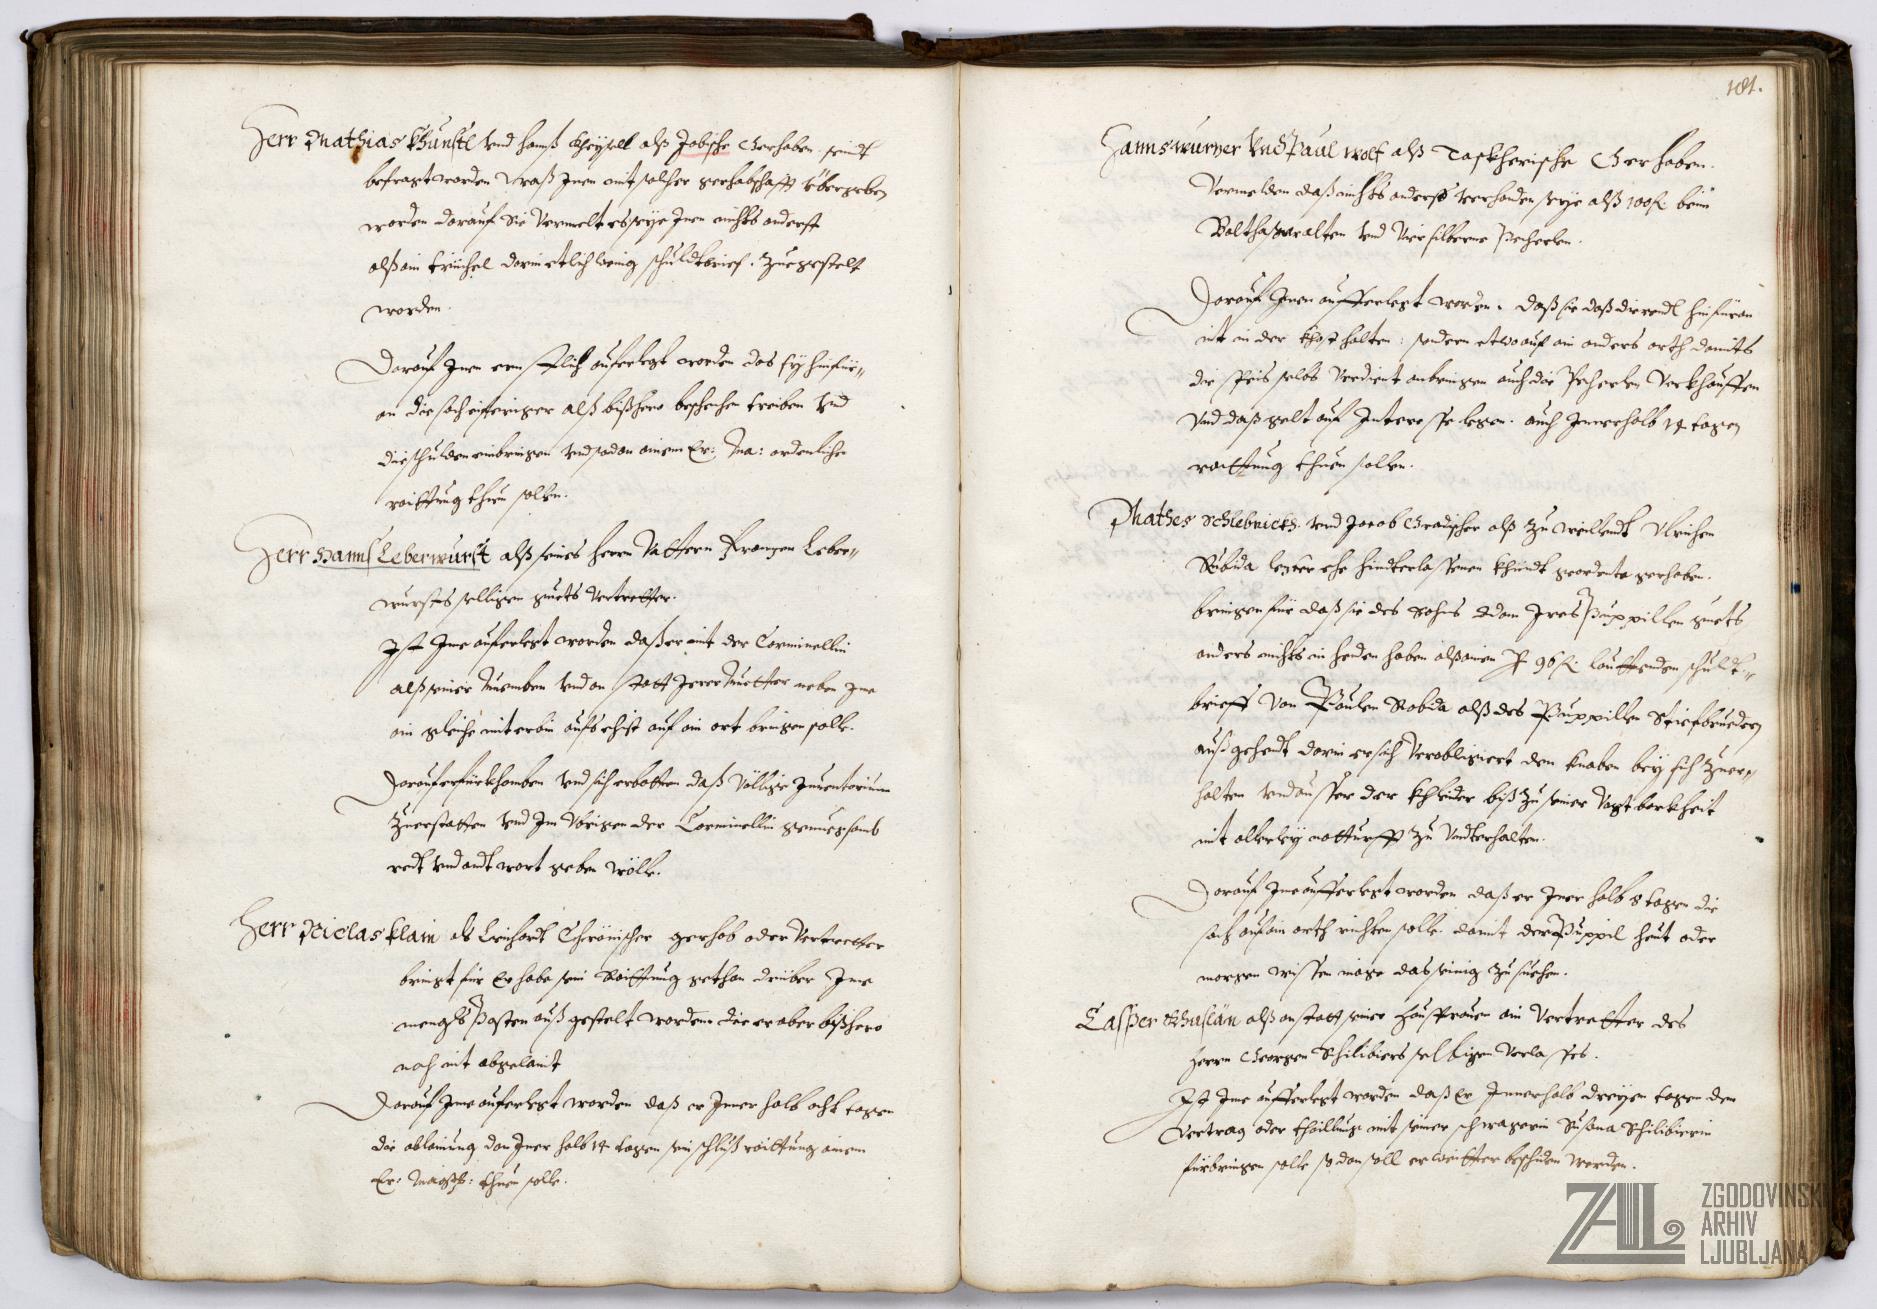 Herr Mathias Khünstl vnd Hannß Cheyßell alß Jobische Gerhaben seindt
befragt worden waß Jnen mit solher gerhabschafft vbergeben
worden darauf Sie vermelt es seye Jnen nichts anderst
alß ain trüchel darin etlich wenig schuldtbrief. zuegestelt
worden.
Darauf Jnen ernstlich auferlegt worden das sy hinfür-
an die sach eiferiger alß bißhero beschehen treiben vnd
die schulden einbringen vnd sodan ainem Er: Ma: ordenliche
raittung thuen sollen.
Herr Hannß Leberwurst alß seines herrn Vattern Franzen Leber-
wursts selligen guets vertretter.
Jst Jme auferlegt worden daß er mit der Corminellin
alß seiner Muemben vnd an statt Jrer Muetter neben Jme
ain gleiche miterbin aufs ehist auf ain ort bringen solle.
Darauf er fürkhomben vnd sich erbotten daß völlige Inventarium
zuerstatten vnd Jm vbrigen der Corminellin genuegsamb
redt vnd andtwort geben wölle.
Herr Niclas Klain als Leinhardt Chrönischer gerhab oder vertretter
bringt für Er habe sein Raittung gethan drüber Jme
mengls Posten auß gestelt worden die er aber bißhero
noch nit abgelaint
Darauf Jme auferlegt worden daß er Jnerhalb acht tagen
die ablainung dan Jnerhalb 14 tagen sein schluß raittung ainem
Er: Magist: thuen solle.
181.
Hanns Wurner vnd Paul Wolf alß Taskherische Gerhaben.
Vermelden daß nichts anderß verhanden seye alß 100 fl. beim
Balthasar alten vnd vier silberne Pecherlen.
Darauf Jnen aufferlegt worden. daß sie daß diendl hinfüran
nit in der Khost halten: sondern etwo auf ain anders orth damits
die speis selbs verdient anbringen auch die Pecherlen verkhauffen
vnd daß gelt auf Interesse legen. auch Jnnerhalb 14 tagen
raittung thuen sollen.
Mathes Schlebnickh. vnd Jacob Gradischer alß zu weillendt Vlrichen
Robida lezter ehe hinderlassenen khindt geordente gerhaben.
bringen für daß sie des Sohns Adam Jres Puppillen guets
anders nichts in henden haben alß ainen P 96 fl. lauttenden schuldt-
brieff von Paulen Robida alß des Puppillen Stiefbruedern
außgehendt darin er sich verobligiert den knaben bey sich zuer-
halten vnd ausser der khleider biß zu seiner vogtbarkheit
mit allerley notturfft zu vnderhalten.
Darauf Jme aufferlegt worden daß er Jnerhalb 8 tagen die
sach auf ain orth richten solle. damit der Puppil heut oder
morgen wissen möge das seinig zu suechen.
Casper alß anstatt seiner haußfrauen ain vertretter des
herrn Georgen Schilibiers selbigen verlasses.
Jst Jme aufferlegt worden daß Er Jnnerhalb dreyen tagen den
Vertrag oder thaillung mit seiner schwagerin Susana Schilibierin
fürbringen solle sodan soll er weitter beschiden werden.
ZAL
ZGODOVINSKI
ARHIV
LJUBLJANA